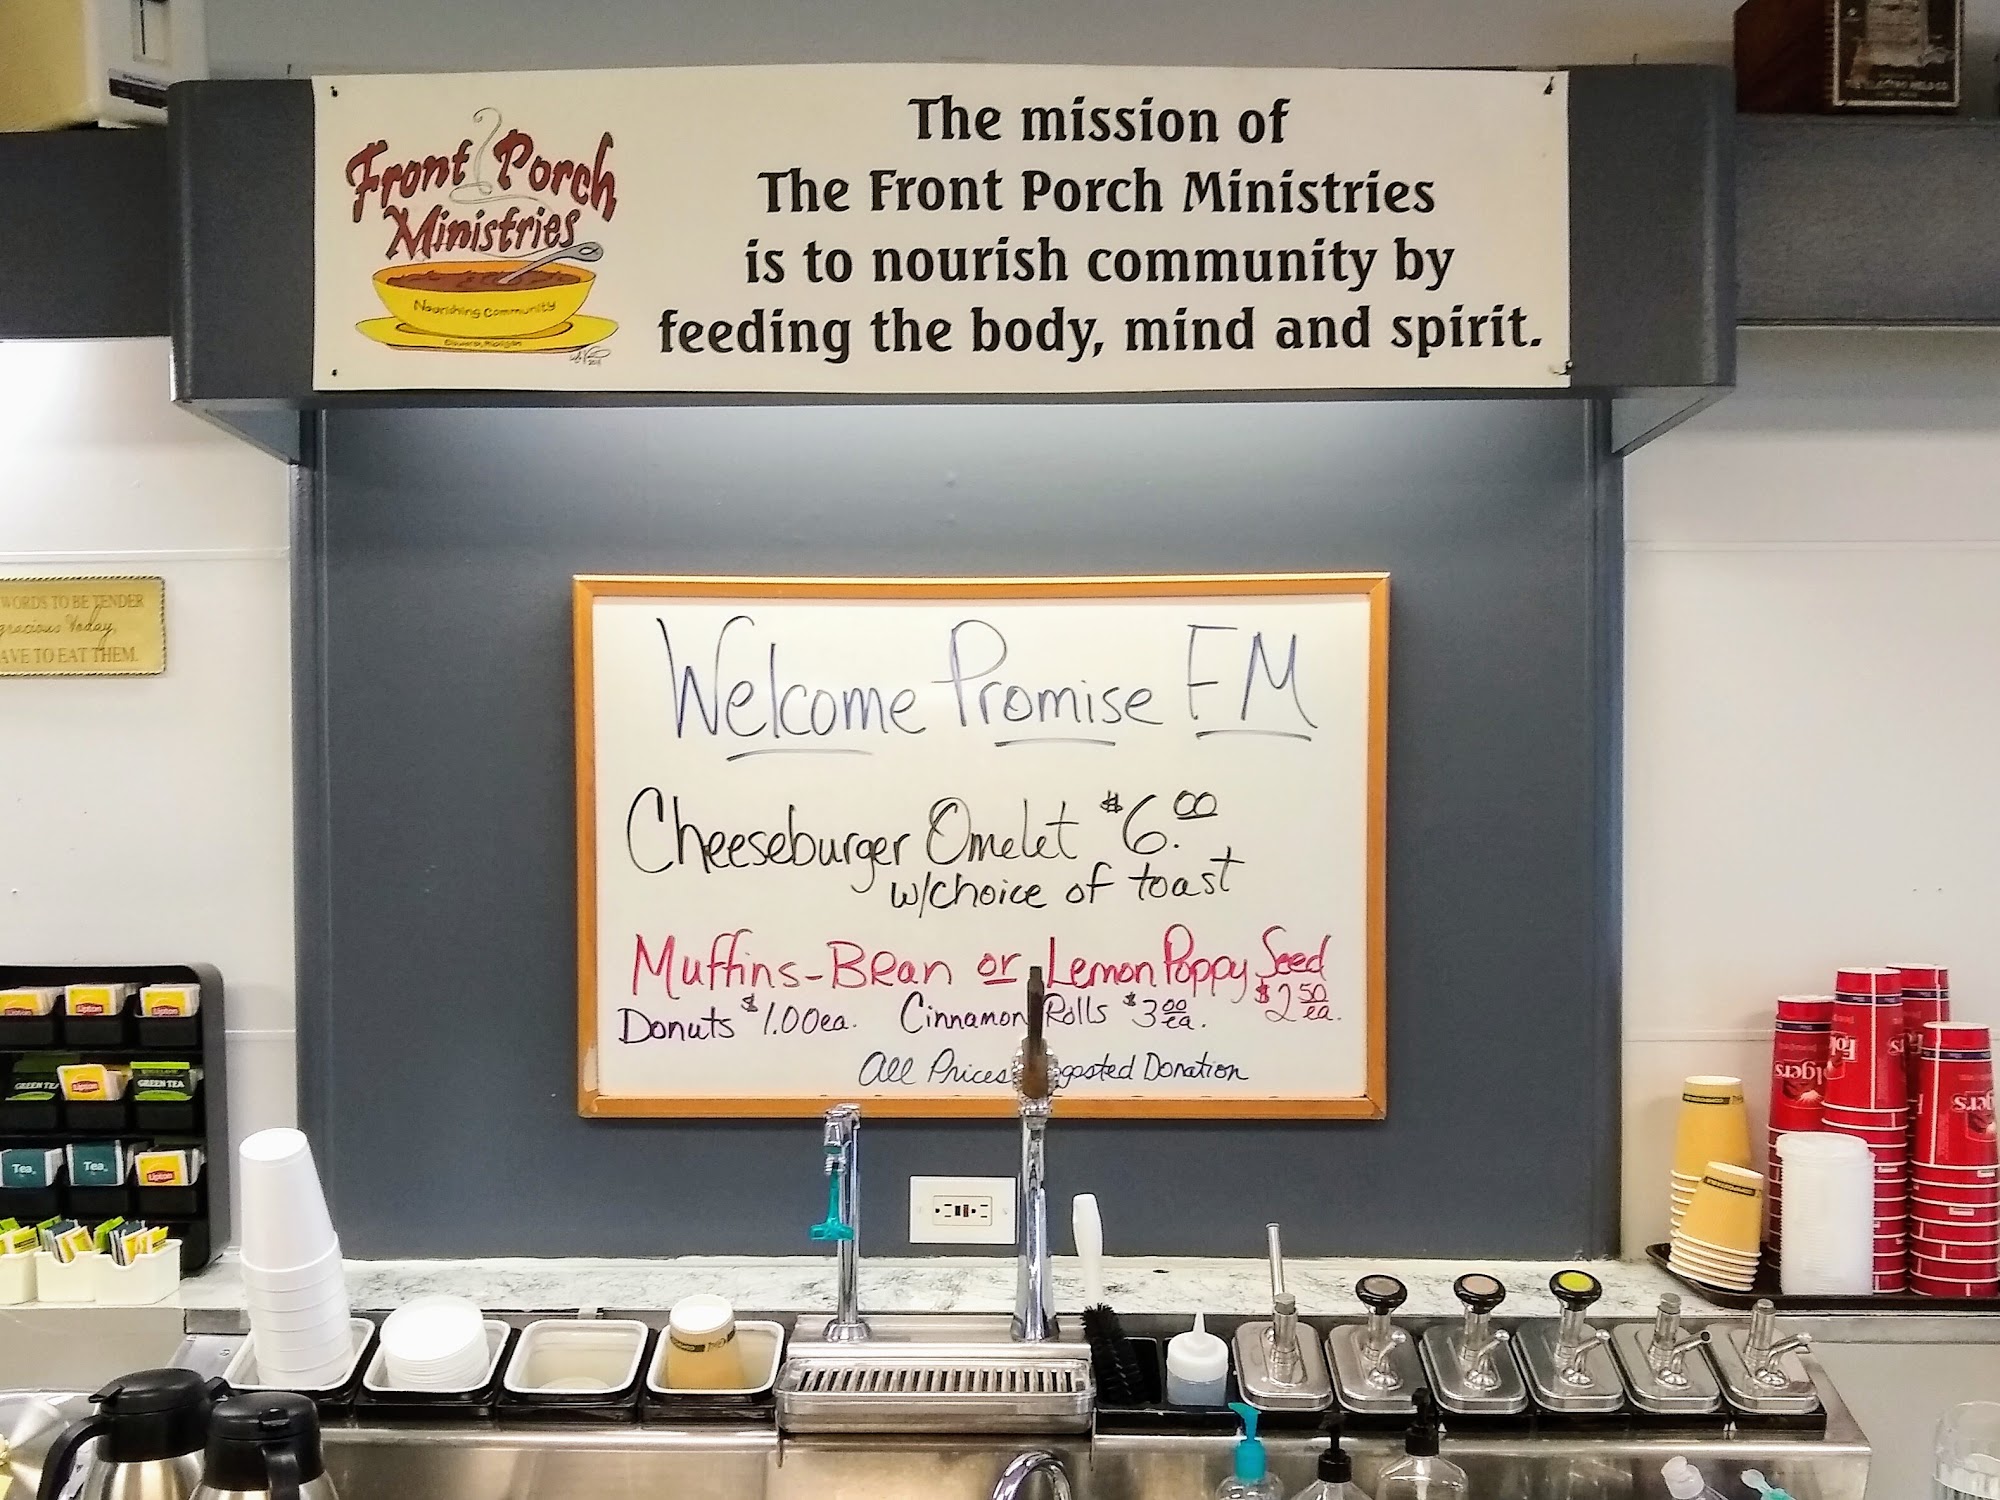 Front Porch
Ministries
Nourishing Community
The mission of
The Front Porch Ministries
is to nourish community by
feeding the body, mind and spirit.
WORDS TO BE TENDER
gracious Today,
AVE TO EAT THEM.
Welcome Promise FM
Cheeseburger Omelet $6.00
w/choice of toast
Muffins-Bran or Lemon Poppy Seed
$2.50 ea.
Donuts $1.00ea. Cinnamon Rolls $3.00 ea.
All Prices Donation
Lipton
Lipton
Lipton
GREEN TEA
Lipton
GREEN TEA
Tea
Tea
Lipton
Folgers